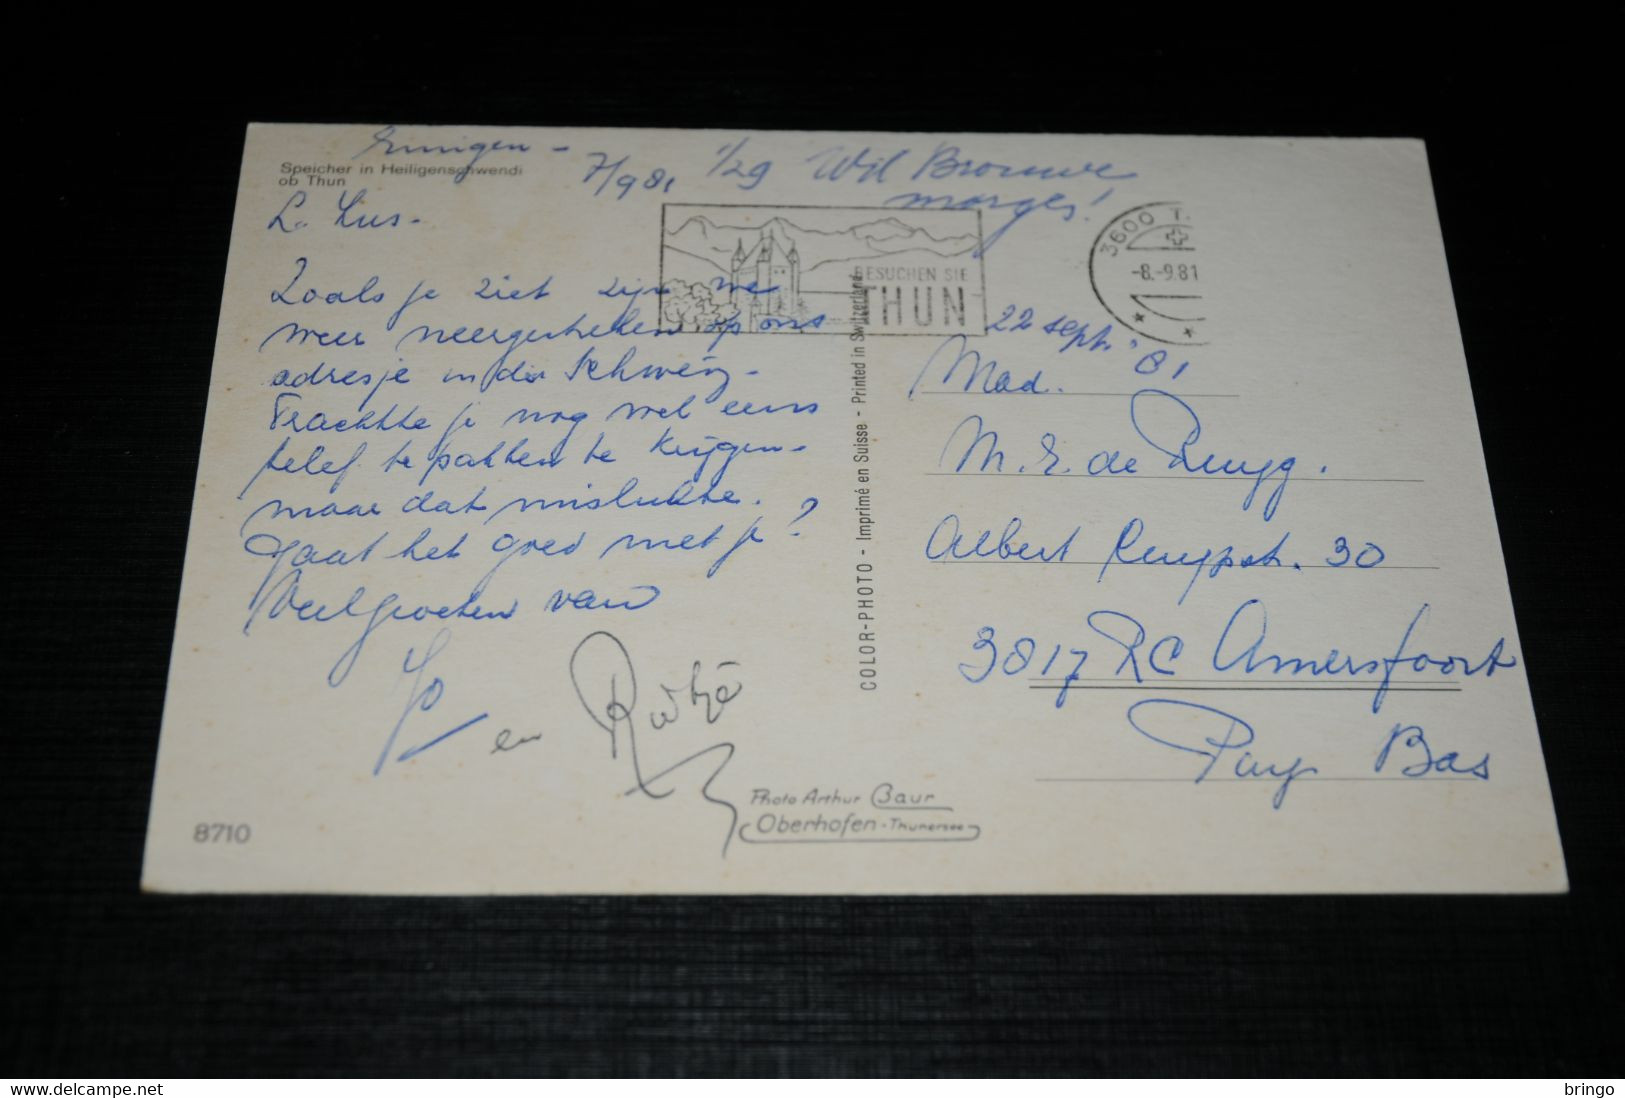 Speicher in Heiligenschwendi
ob Thun
Einigen -
7/9 81,
1/29 Wil Brouwe
morges!
L. Lus -
Zoals je ziet zijn we
weer neergestreken op ons
adresje in de Schweiz -
Trachtte je nog wel eens
telef. te pakken te krijgen -
maar dat mislukte.
Gaat het goed met je?
Veel groeten van
Jo
en
8710
BESUCHEN SIE
THUN
3600 T
-8.-9.81
22 sept. '81
COLOR-PHOTO - Imprimé en Suisse - Printed in Switzerland
Mad.
M. E. de Ruyg.
Albert Cuypstr. 30
3817 RC Amersfoort
Pay Bas
Photo Arthur Baur
Oberhofen - Thunersee
https://www.delcampe.net
bringo